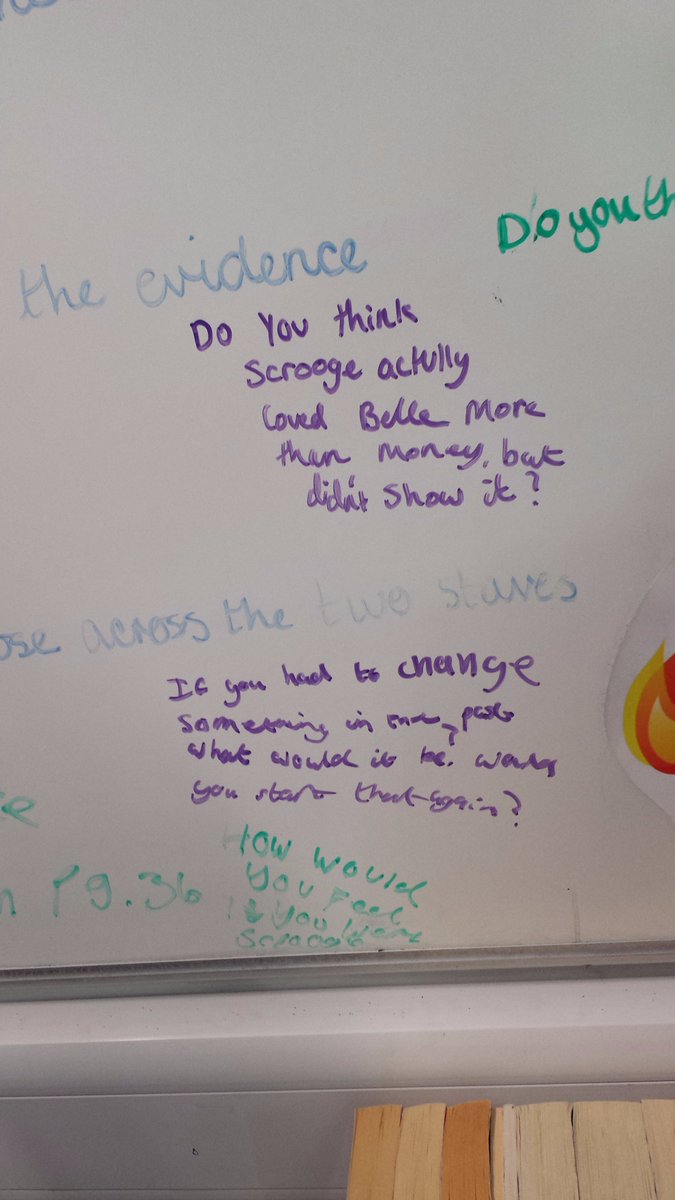 Do you th
the evidence
Do You think
Scrooge actully
loved Belle More
than money, but
didn't show it?
ose across the two staves
If you had to change
something in your past
what would it be? would
you start that again?
Pg.36
How would
You Feel
If You Were
Scrooge